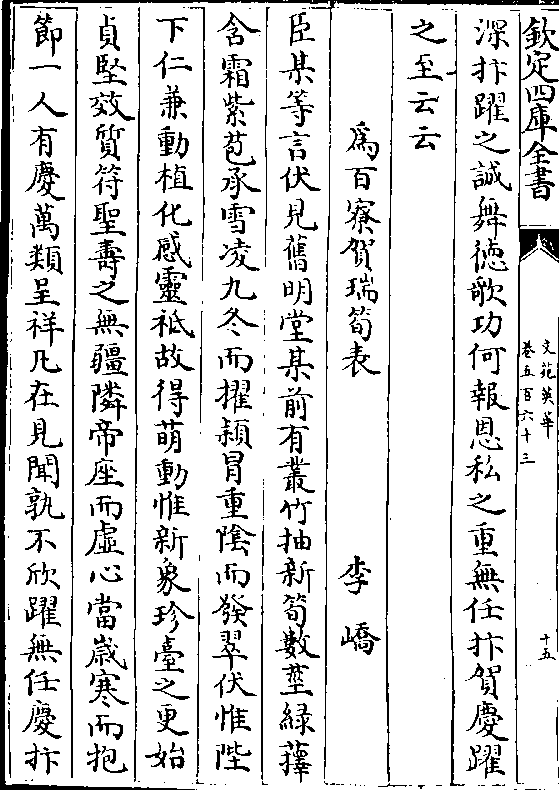 欽定四庫全書
文苑英華
卷五百六十三
十五
深抃躍之誠舞徳歌功何報恩私之重無任抃賀慶躍
之至云云
爲百寮賀瑞筍表
李嶠
臣某等言伏見舊明堂某前有叢竹抽新筍數莖綠蘀
含霜紫苞承雪凌九冬而擢頴冐重陰而發翠伏惟陛
下仁兼動植化感靈祗故得萌動惟新象珍臺之更始
貞堅效質符聖壽之無疆隣帝座而虛心當嵗寒而抱
節一人有慶萬類呈祥凡在見聞孰不欣躍無任慶抃